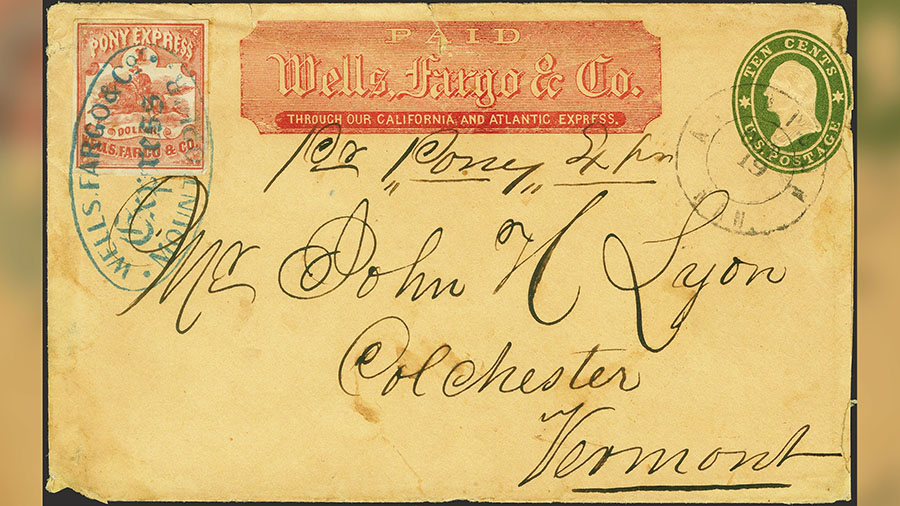 PAID
Wells, Fargo & Co.
THROUGH OUR CALIFORNIA AND ATLANTIC EXPRESS.
PONY EXPRESS
DOLLAR
WELLS, FARGO & CO.
WELLS, FARGO & Co.
TEN CENTS
U.S. POSTAGE
19
Pr „Pony„ Exprs
Mr John H Lyon
Colchester
Vermont